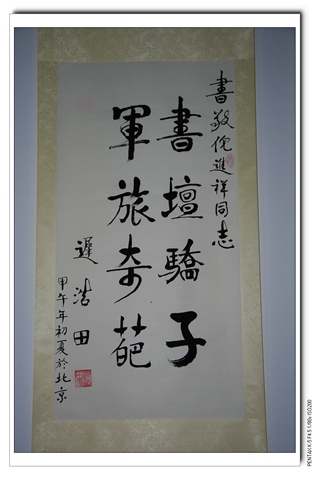 書敬倪進祥同志
書壇驕子
軍旅奇葩
遲浩田
甲午年初夏於北京
PENTAX K-5 F4.5 1/80s ISO200